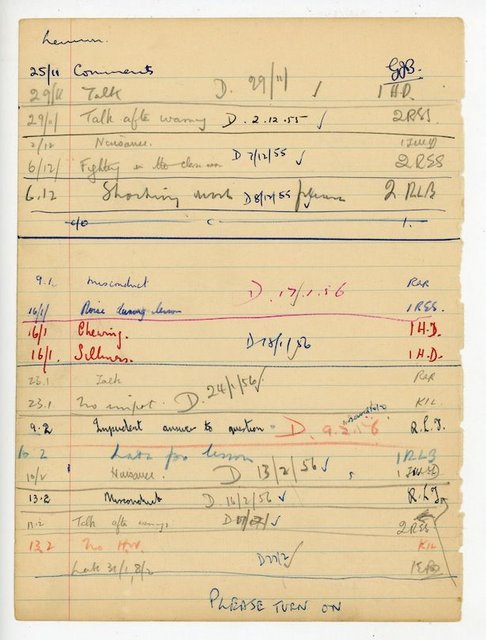 Lennon.
25/11 Comments GJB.
29/11 Talk D. 29/11 1 H.D.
29/11 Talk after warning D. 2.12.55 2RSS.
2/12 Nuisance.
6/12/ Fighting in the classroom D 7/12/55 2RSS
6.12 Shocking work D 8/12/55 2 RLB
c/o c 1.
9.1. misconduct D. 17/1.56 RER
16/1/ Noise during lesson 1RSS.
16/1 Chewing. 1 H.D.
16/1. Silliness. D 18/1/56 1 H.D.
23.1 Talk RER
23.1 No impot. D. 24/1/56 KIL
9.2 Impudent answer to question. D. R.L.J.
10.2 Late for lesson 1RLJ
10/2 Nuisance D 13/2/56
13.2 Misconduct D 16/2/56 R.L.J.
13.2 Talk after warnings D 2RSS
13.2 No H.W. KIL
Late 31/1, 8/2 D
PLEASE TURN ON